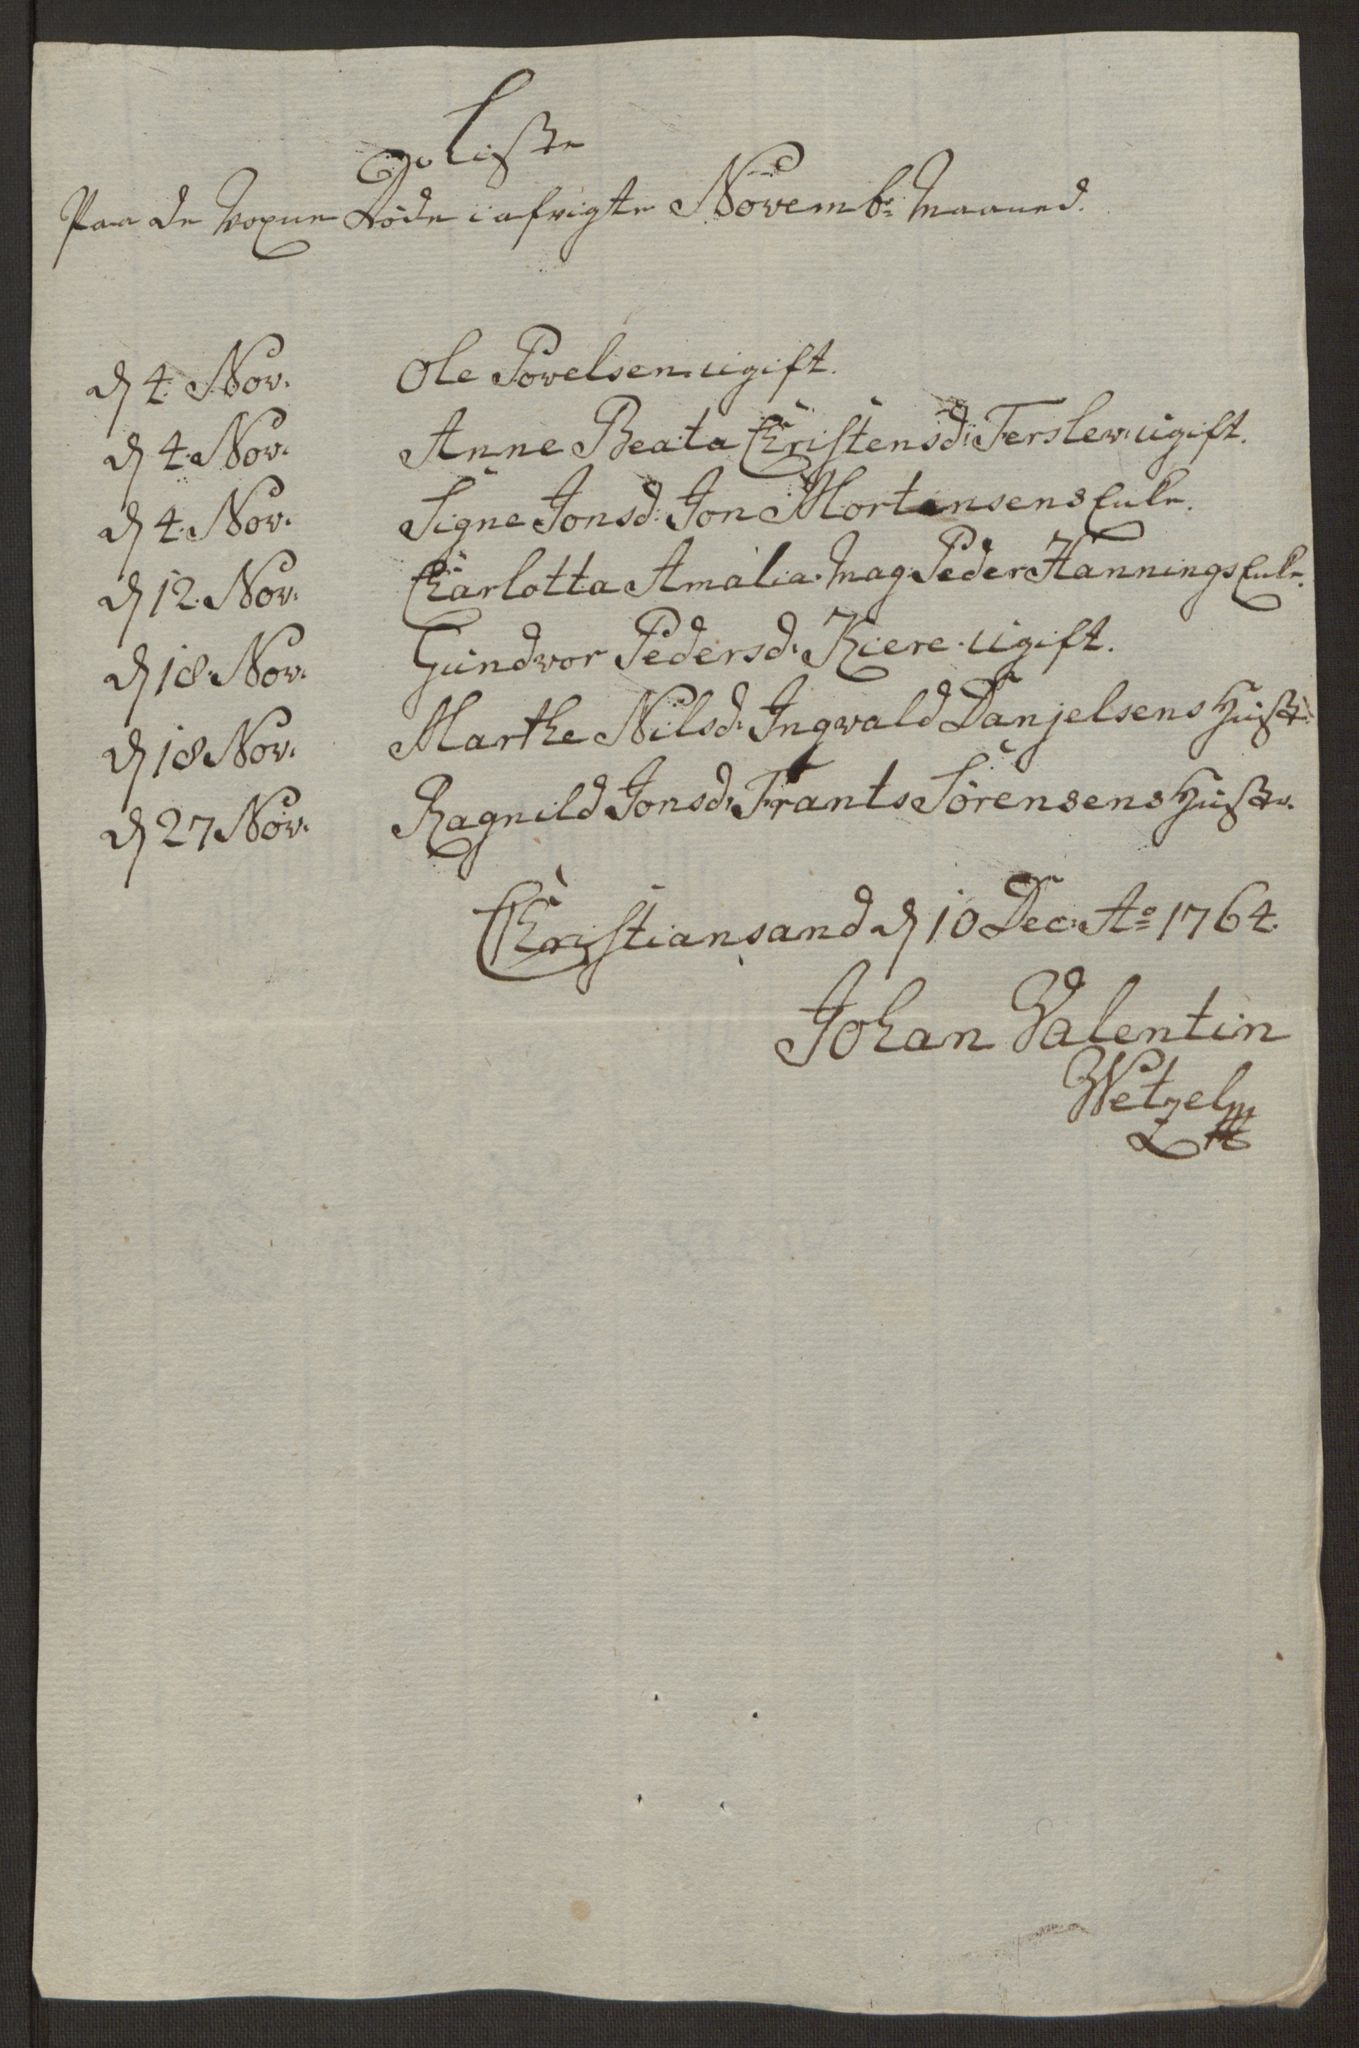 Liste
Paa de Voxne Døde i afvigte Novembr Maaned.
d 4. Nov. Ole Povelsen. ugift.
d 4. Nov. Anne Beata Christensd: Terslev. ugift.
d 4. Nov. Signe Jonsd: Jon Mortensens Enke.
d 12. Nov. Charlotta Amalia. Mag. Peder Hannings Enke.
d 18. Nov. Gundvor Pedersd. Kiere. ugift.
d 18 Nov. Marthe Nilsd. Ingvald Danjelsens Hustr.
d 27 Nov. Ragnild Jonsd. Frants Sörensens Hustr.
Christiansand d 10 Dec. Ao 1764.
Johan Valentin
Wetzel